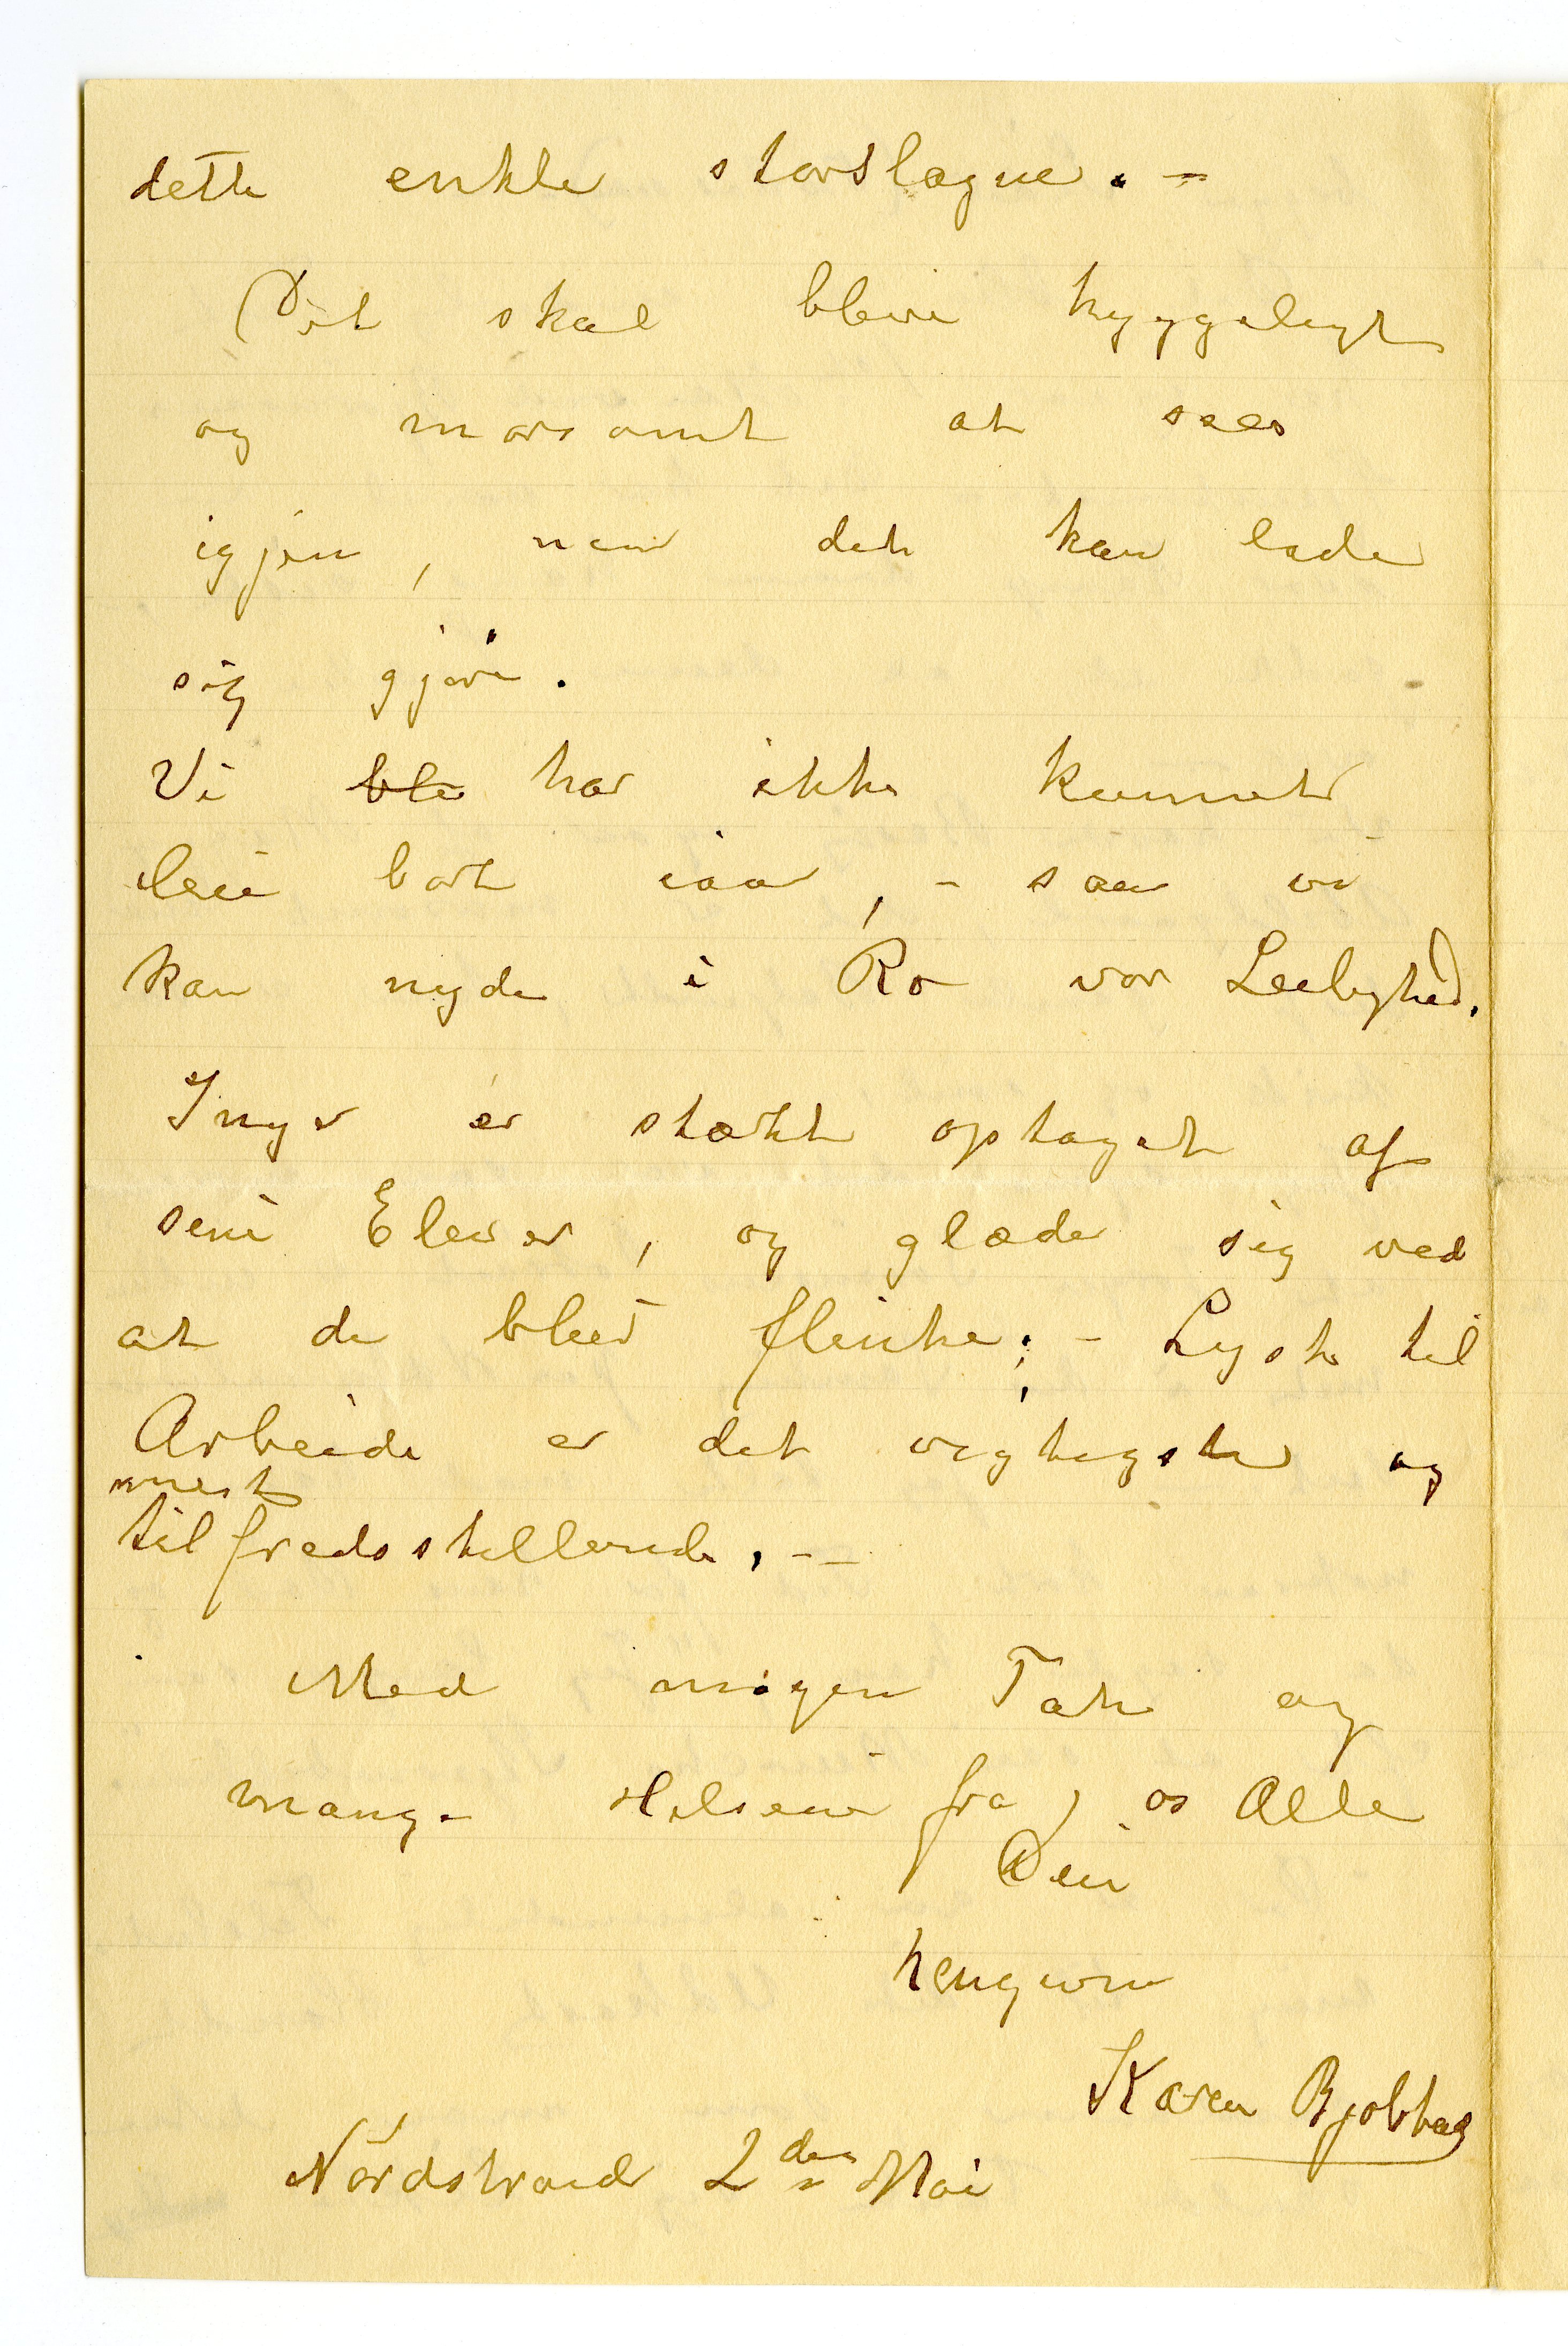 dette enkle storslagne. -
Det skal blive hyggeligt
og morsomt at sees
igjen, naar det kan lade
sig gjøre.
Vi ble har ikke kunnet
leie bort iaar, - saa vi
kan nyde i Ro vor Leilighed.
Inga er stærkt optaget af
sine Elever, og glæder sig ved
at de blir flinke; - Lyst til
Arbeide er det vigtigste og
mest
tilfredsstillende. --
Med megen Tak og
mange Hilsener fra os Alle
Din
hengivne
Karen
Nordstrand 2den Mai